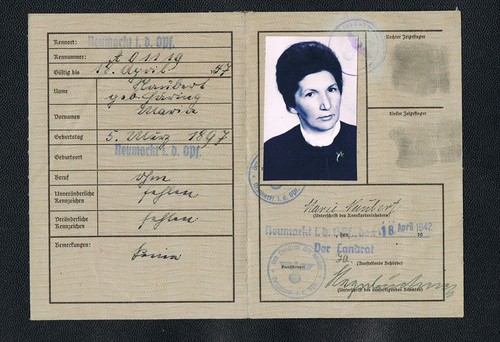 Kennort: Neumarkt i. d. Opf.
Kennnummer: A 01119
Gültig bis 18. April 47
Name
geb. Häring
Vornamen Maria
Geburtstag 5. März 1897
Geburtsort Neumarkt i. d. Opf.
Beruf ohne
Unveränderliche Kennzeichen fehlen
Veränderliche Kennzeichen fehlen
Bemerkungen: keine
Rechter Zeigefinger
Linker Zeigefinger
Marie Neubert
(Unterschrift des Kennkarteninhabers)
Neumarkt i. d. Opf., den 18. April 1942
Der Landrat
(Ausstellende Behörde)
Dienststempel
(Unterschrift des ausfertigenden Beamten)